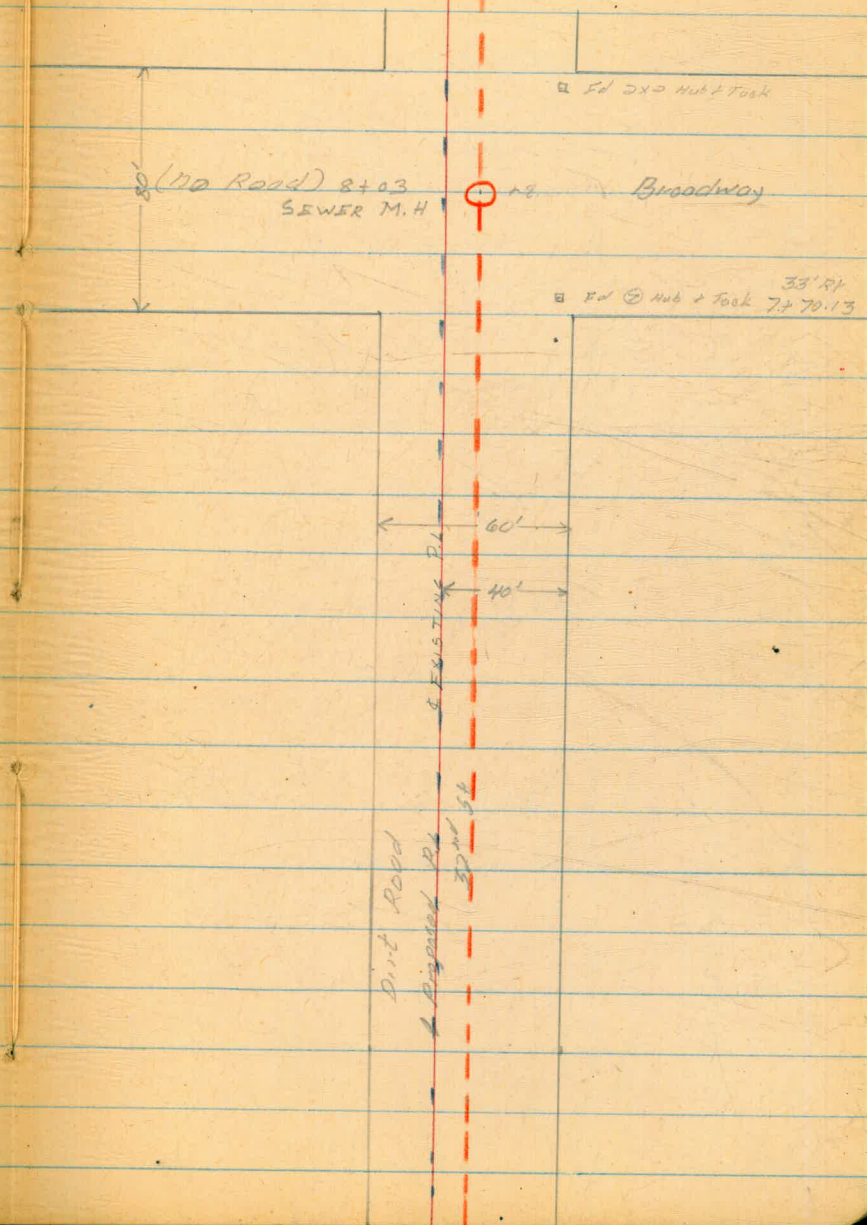 Fd 2x2 Hub & Tack
80'
(no Road) 8+03
SEWER M.H
Broadway
33' Rt
Fd Hub & Tack 7+70.13
60'
40'
℄ EXISTING P.L
32nd St
℄ Proposed P.L
Dirt Road